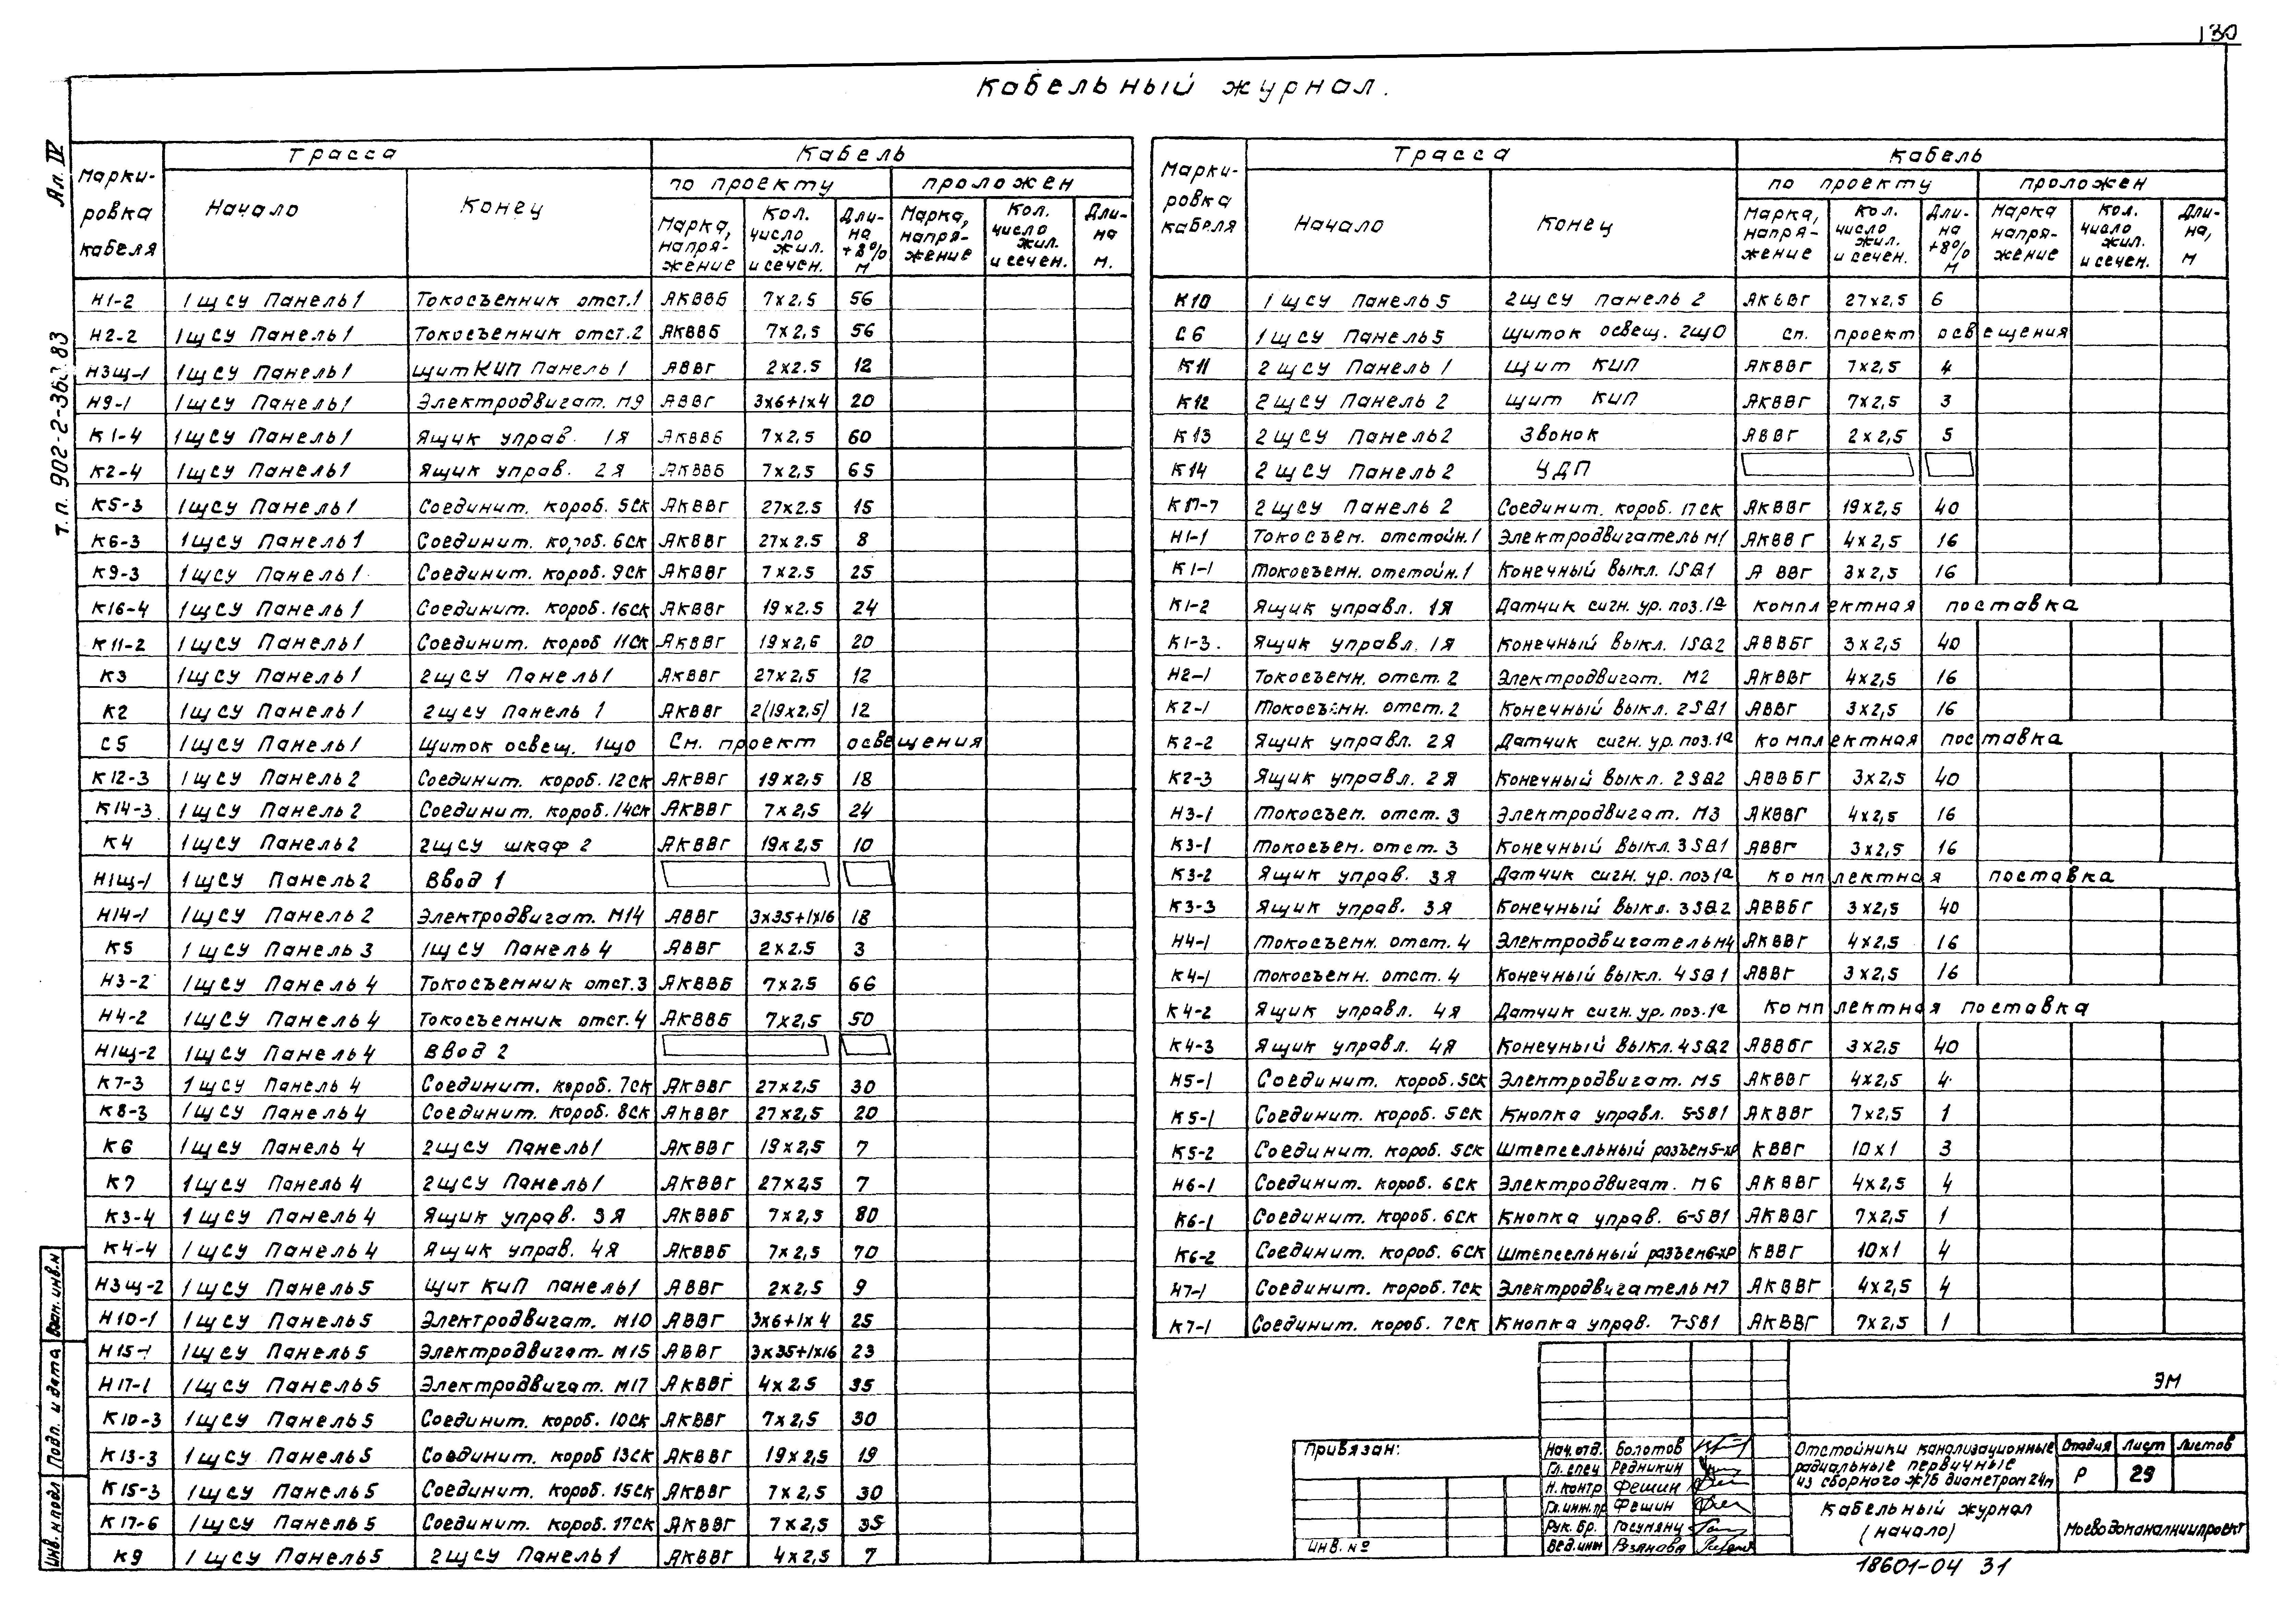 130
Кабельный журнал.
Ал. IV
Т.п. 902-2-363.83
Марки-ровка кабеля | Трасса | Кабель
Начало | Конец | по проекту | проложен
Марка, напря-жение | Кол. число жил. и сечен. | Дли-на +8% м | Марка, напря-жение | Кол. число жил. и сечен. | Дли-на м.
Н1-2 1ЩСУ Панель 1 Токосъемник отст.1 АКВВБ 7х2,5 56
Н2-2 1ЩСУ Панель 1 Токосъемник отст.2 АКВВБ 7х2,5 56
Н3щ-1 1ЩСУ Панель 1 Щит КИП Панель 1 АВВГ 2х2.5 12
Н9-1 1ЩСУ Панель 1 Электродвигат. М9 АВВГ 3х6+1х4 20
К1-4 1ЩСУ Панель 1 Ящик управ. 1Я АКВВБ 7х2,5 60
К2-4 1ЩСУ Панель 1 Ящик управ. 2Я АКВВБ 7х2,5 65
К5-3 1ЩСУ Панель 1 Соединит. короб. 5СК АКВВГ 27х2.5 15
К6-3 1ЩСУ Панель 1 Соединит. короб. 6СК АКВВГ 27х2.5 8
К9-3 1ЩСУ Панель 1 Соединит. короб. 9СК АКВВГ 7х2.5 25
К16-4 1ЩСУ Панель 1 Соединит. короб. 16СК АКВВГ 19х2.5 24
К11-2 1ЩСУ Панель 1 Соединит. короб 11СК АКВВГ 19х2,6 20
К3 1ЩСУ Панель 1 2ЩСУ Панель 1 АКВВГ 27х2,5 12
К2 1ЩСУ Панель 1 2ЩСУ Панель 1 АКВВГ 2(19х2,5) 12
С5 1ЩСУ Панель 1 Щиток освещ. 1ЩО См. проект освещения
К12-3 1ЩСУ Панель 2 Соединит. короб. 12СК АКВВГ 19х2,5 18
К14-3 1ЩСУ Панель 2 Соединит. короб. 14СК АКВВГ 7х2,5 24
К4 1ЩСУ Панель 2 2ЩСУ шкаф 2 АКВВГ 19х2,5 10
Н1щ-1 1ЩСУ Панель 2 Ввод 1
Н14-1 1ЩСУ Панель 2 Электродвигат. М14 АВВГ 3х35+1х16 18
К5 1ЩСУ Панель 3 1ЩСУ Панель 4 АВВГ 2х2.5 3
Н3-2 1ЩСУ Панель 4 Токосъемник отст.3 АКВВБ 7х2,5 66
Н4-2 1ЩСУ Панель 4 Токосъемник отст.4 АКВВБ 7х2,5 50
Н1щ-2 1ЩСУ Панель 4 Ввод 2
К7-3 1ЩСУ Панель 4 Соединит. короб. 7СК АКВВГ 27х2,5 30
К8-3 1ЩСУ Панель 4 Соединит. короб. 8СК АКВВГ 27х2,5 20
К6 1ЩСУ Панель 4 2ЩСУ Панель 1 АКВВГ 19х2,5 7
К7 1ЩСУ Панель 4 2ЩСУ Панель 1 АКВВГ 27х2,5 7
К3-4 1ЩСУ Панель 4 Ящик управ. 3Я АКВВБ 7х2,5 80
К4-4 1ЩСУ Панель 4 Ящик управ. 4Я АКВВБ 7х2,5 70
Н3щ-2 1ЩСУ Панель 5 Щит КИП панель 1 АВВГ 2х2,5 9
Н10-1 1ЩСУ Панель 5 Электродвигат. М10 АВВГ 3х6+1х4 25
Н15-1 1ЩСУ Панель 5 Электродвигат. М15 АВВГ 3х35+1х16 23
Н17-1 1ЩСУ Панель 5 Электродвигат. М17 АКВВГ 4х2.5 35
К10-3 1ЩСУ Панель 5 Соединит. короб. 10СК АКВВГ 7х2,5 30
К13-3 1ЩСУ Панель 5 Соединит. короб 13СК АКВВГ 19х2,5 19
К15-3 1ЩСУ Панель 5 Соединит. короб. 15СК АКВВГ 7х2,5 30
К17-6 1ЩСУ Панель 5 Соединит. короб. 17СК АКВВГ 7х2,5 35
К9 1ЩСУ Панель 5 2ЩСУ Панель 1 АКВВГ 4х2,5 7
Марки-ровка кабеля | Трасса | Кабель
Начало | Конец | по проекту | проложен
Марка, напря-жение | Кол. число жил. и сечен. | Дли-на +8% м | Марка напря-жение | Кол. число жил. и сечен. | Дли-на, м
К10 1ЩСУ Панель 5 2ЩСУ панель 2 АКВВГ 27х2,5 6
С6 1ЩСУ Панель 5 Щиток освещ. 2ЩО См. проект освещения
К11 2ЩСУ Панель 1 Щит КИП АКВВГ 7х2,5 4
К12 2ЩСУ Панель 2 Щит КИП АКВВГ 7х2,5 3
К13 2ЩСУ Панель 2 Звонок АВВГ 2х2,5 5
К14 2ЩСУ Панель 2 УДП
К17-7 2ЩСУ Панель 2 Соединит. короб. 17СК АКВВГ 19х2,5 40
Н1-1 Токосъем. отстойн.1 Электродвигатель М1 АКВВГ 4х2,5 16
К1-1 Токосъемн. отстойн.1 Конечный выкл. 1SQ1 АВВГ 3х2,5 16
К1-2 Ящик управл. 1Я Датчик сигн. ур. поз.1а комплектная поставка
К1-3. Ящик управл. 1Я Конечный выкл. 1SQ2 АВВБГ 3х2,5 40
Н2-1 Токосъемн. отст. 2 Электродвигат. М2 АКВВГ 4х2,5 16
К2-1 Токосъемн. отст. 2 Конечный выкл. 2SQ1 АВВГ 3х2,5 16
К2-2 Ящик управл. 2Я Датчик сигн. ур. поз.1а комплектная поставка
К2-3 Ящик управл. 2Я Конечный выкл. 2SQ2 АВВБГ 3х2,5 40
Н3-1 Токосъем. отст. 3 Электродвигат. М3 АКВВГ 4х2,5 16
К3-1 Токосъем. отст. 3 Конечный выкл. 3SQ1 АВВГ 3х2,5 16
К3-2 Ящик управ. 3Я Датчик сигн. ур. поз1а комплектная поставка
К3-3 Ящик управ. 3Я Конечный выкл. 3SQ2 АВВБГ 3х2,5 40
Н4-1 Токосъемн. отст. 4 Электродвигатель М4 АКВВГ 4х2,5 16
К4-1 Токосъемн. отст. 4 Конечный выкл. 4SQ1 АВВГ 3х2,5 16
К4-2 Ящик управл. 4Я Датчик сигн. ур. поз.1а комплектная поставка
К4-3 Ящик управ. 4Я Конечный выкл. 4SQ2 АВВБГ 3х2,5 40
Н5-1 Соединит. короб. 5СК Электродвигат. М5 АКВВГ 4х2,5 4
К5-1 Соединит. короб. 5СК Кнопка управл. 5-SB1 АКВВГ 7х2,5 1
К5-2 Соединит. короб. 5СК Штепсельный разъем 5-ХР КВВГ 10х1 3
Н6-1 Соединит. короб. 6СК Электродвигат. М6 АКВВГ 4х2,5 4
К6-1 Соединит. короб. 6СК Кнопка управ. 6-SB1 АКВВГ 7х2,5 1
К6-2 Соединит. короб. 6СК Штепсельный разъем 6-ХР КВВГ 10х1 4
Н7-1 Соединит. короб. 7СК Электродвигатель М7 АКВВГ 4х2,5 4
К7-1 Соединит. короб. 7СК Кнопка управ. 7-SB1 АКВВГ 7х2,5 1
Взам. инв.н
Подп. и дата
Инв. н подл
Привязан:
Инв. №
Нач. отд. Болотов
Гл. спец Редникин
Н. контр Фешин
Гл. инж. пр Фешин
Рук. бр. Гасунянц
Вед. инж Рязанова
ЭМ
Отстойники канализационные радиальные первичные из сборного ж/б диаметром 24м
Стадия Лист Листов
Р 29
Кабельный журнал (начало)
Мосводоканалниипроект
18601-04 31